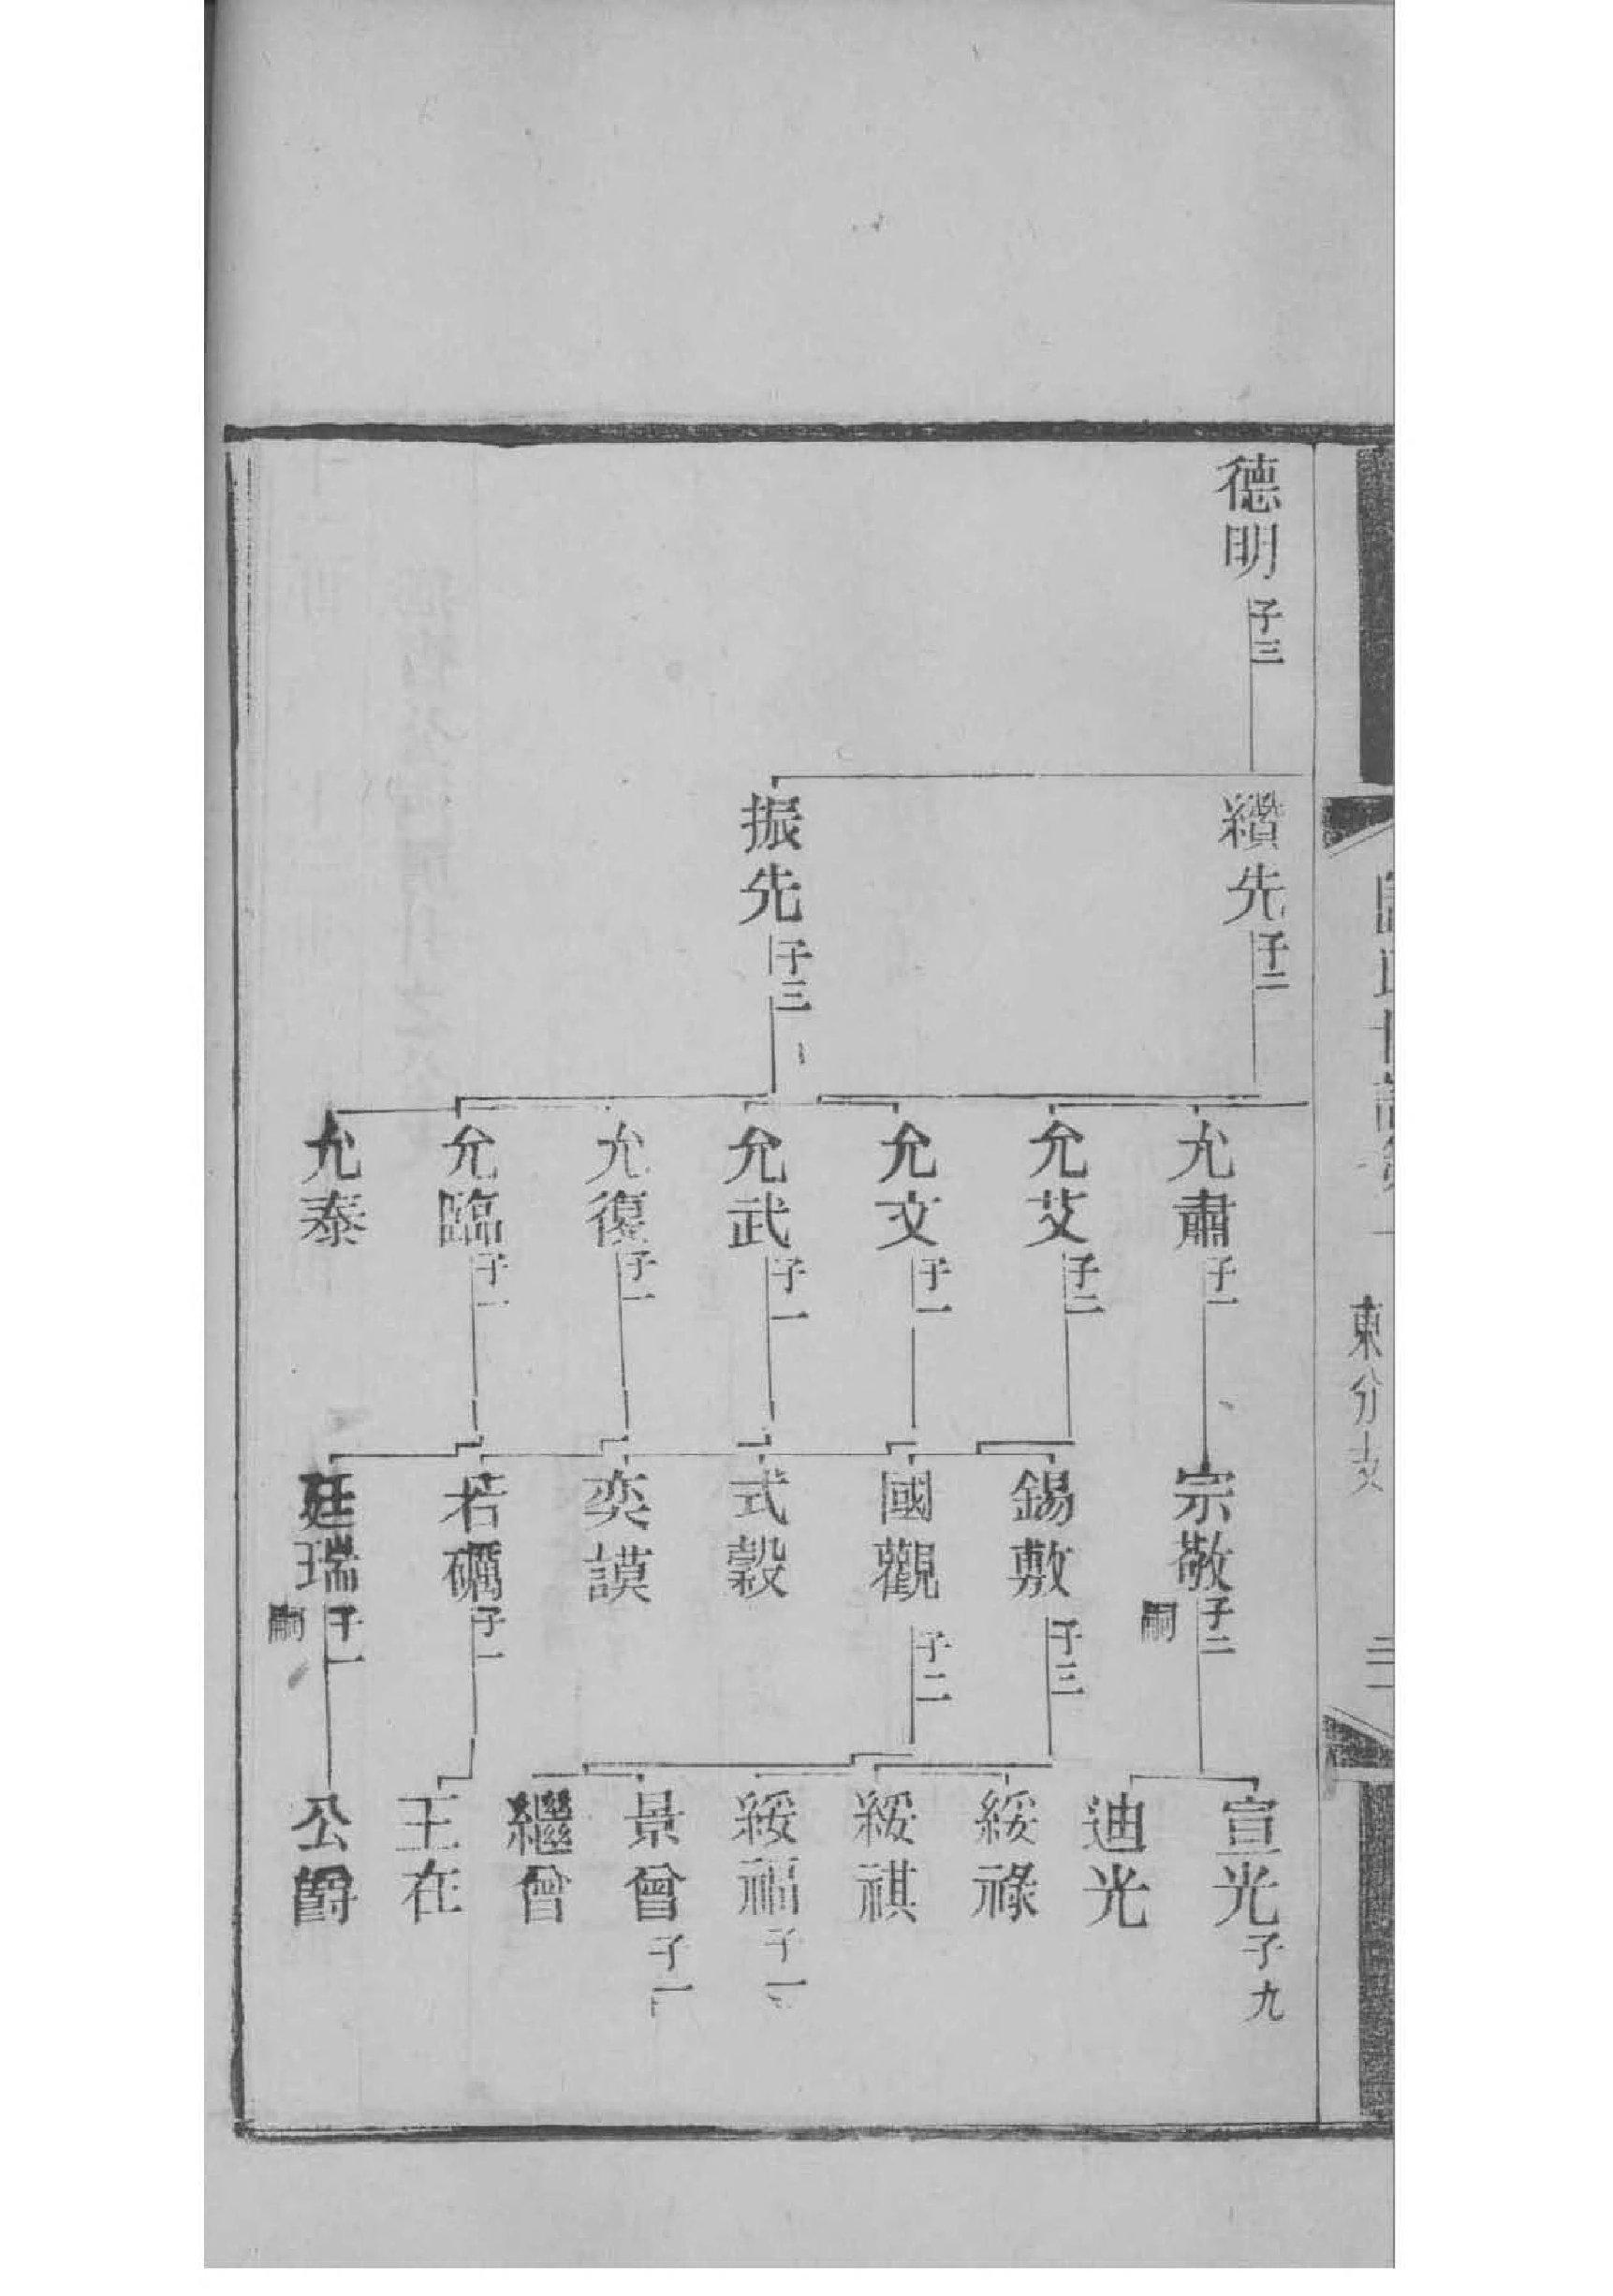 德明 子三
纘先 子二
振先 子三
允肅 子一
允艾 子二
允文 子一
允武 子一
允復 子一
允臨 子一
允泰
宗敬 子二 嗣
錫敷 子三
國觀 子二
式穀
奕謨
若礪 子一
廷瑞 子一 嗣
宣光 子九
迪光
綏祿
綏祺
綏福 子一
景曾 子一
繼曾
王在
公爵
東分支